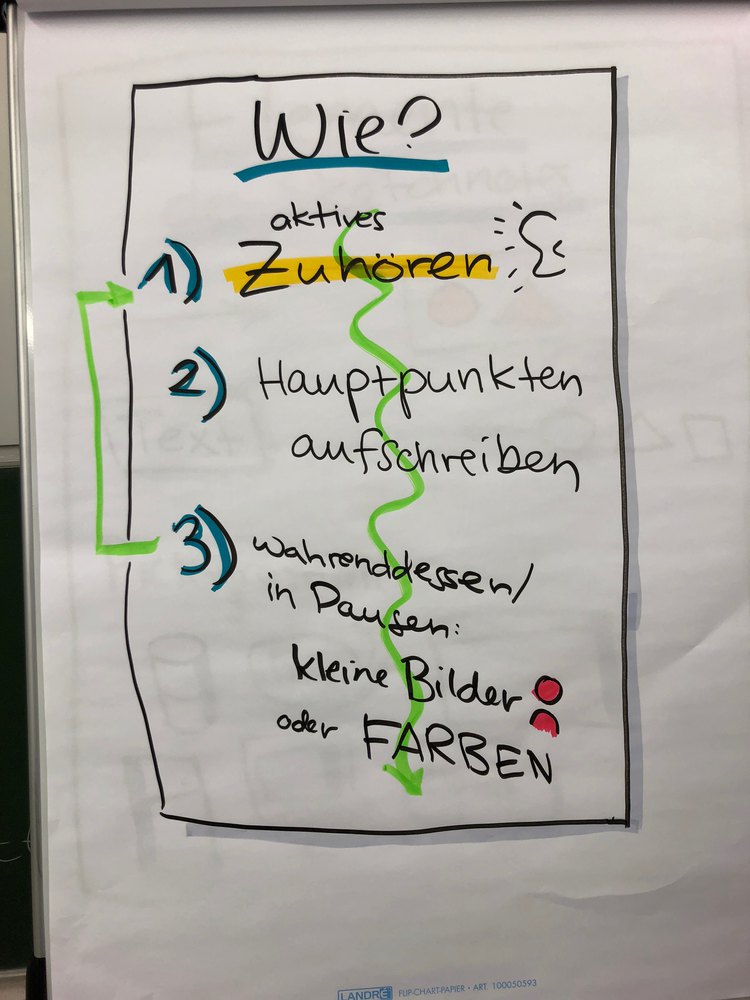 Wie?
aktives
1) Zuhören
2) Hauptpunkten
aufschreiben
3) wahrenddessen/
in Pausen:
kleine Bilder
oder FARBEN
Text
LANDRÉ FLIP-CHART-PAPIER • ART. 100050593